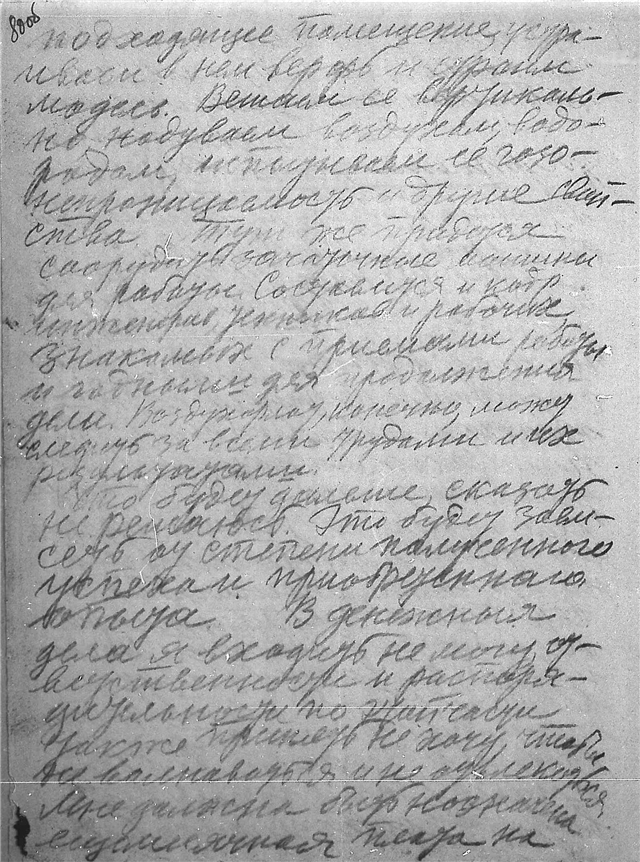 80 об
подходящее помещение, устра-
иваем в нем верфь и строим
модель. Вешаем ее вертикаль-
но, надуваем воздухом, водо-
родом, испытываем ее газо-
непроницаемость и другие свой-
ства. Тут же придется
соорудить зачаточные машины
для работы. Составится и кадр
инженеров, техников и рабочих,
знакомых с приемами работы
и годными для продолжения
дела. Воздухофлот, конечно, может
следить за всеми трудами и их
результатами.
Что будет дальше, сказать
не решаюсь. Это будет зави-
сеть от степени полученного
успеха и приобретенного
опыта. В денежныя
дела я входить не могу. От-
ветственности и распоря-
дительности по
также принять не хочу, чтобы
не волноваться и не отвлекаться.
Мне должна быть назначена
ежемесячная плата на